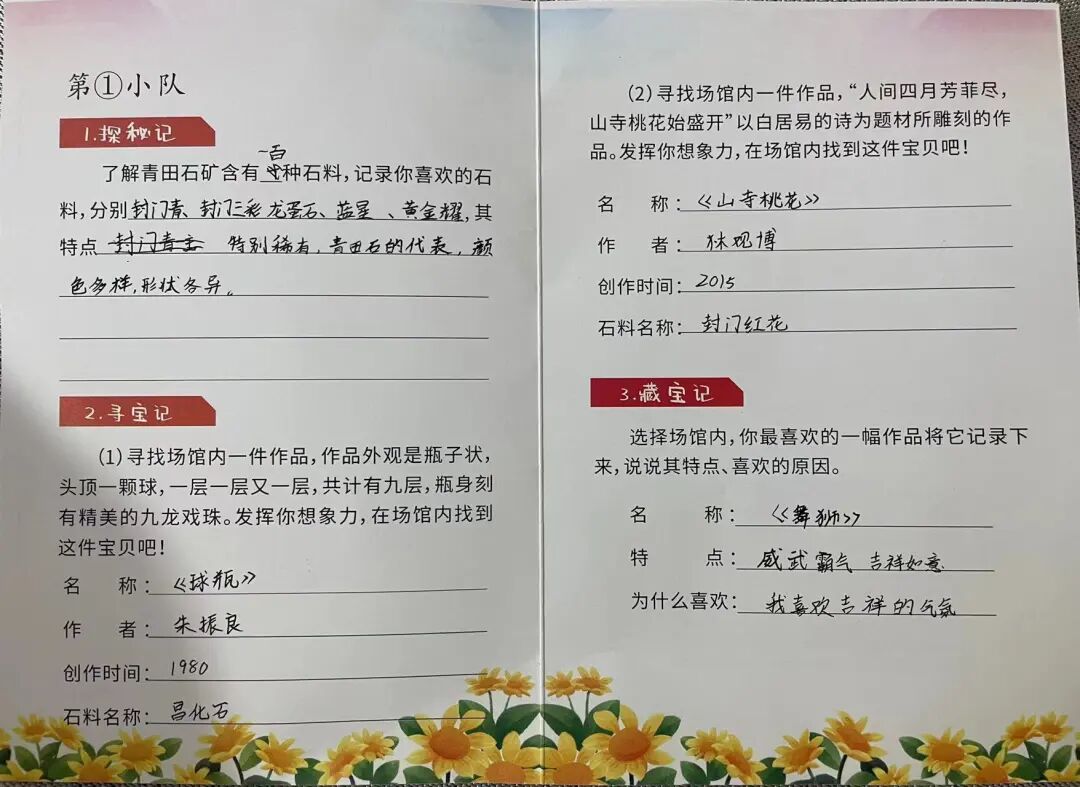 第①小队
1.探秘记
一百
了解青田石矿含有种石料,记录你喜欢的石
料,分别封门青、封门三彩 龙蛋石、蓝星、黄金耀,其
特点 封门青 特别稀有,青田石的代表,颜
色多样,形状各异。
2.寻宝记
(1)寻找场馆内一件作品,作品外观是瓶子状,
头顶一颗球,一层一层又一层,共计有九层,瓶身刻
有精美的九龙戏珠。发挥你想象力,在场馆内找到
这件宝贝吧!
名 称:《球瓶》
作 者:朱振良
创作时间:1980
石料名称:昌化石
(2)寻找场馆内一件作品,“人间四月芳菲尽,
山寺桃花始盛开”以白居易的诗为题材所雕刻的作
品。发挥你想象力,在场馆内找到这件宝贝吧!
名 称:《山寺桃花》
作 者:林观博
创作时间:2015
石料名称:封门红花
3.藏宝记
选择场馆内,你最喜欢的一幅作品将它记录下
来,说说其特点、喜欢的原因。
名 称:《舞狮》
特 点:威武霸气 吉祥如意
为什么喜欢:我喜欢吉祥的气氛